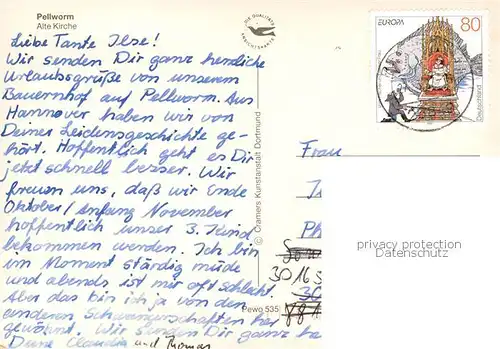 Pellworm
Alte Kirche
DIE QUALITÄTS
ANSICHTSKARTE
EUROPA 80
Deutschland
Liebe Tante Ilse!
Wir senden Dir ganz herzliche
Urlaubsgrüße von unserem
Bauernhof auf Pellworm. Aus
Hannover haben wir von
Deiner Leidensgeschichte ge-
hört. Hoffentlich geht es Dir
jetzt schnell besser. Wir
freuen uns, daß wir Ende
Oktober/Anfang November
hoffentlich unser 3. Kind
bekommen werden. Ich bin
im Moment ständig müde
und abends ist mir oft schlecht.
Aber das bin ich ja von den
anderen Schwangerschaften her
gewöhnt. Wir senden Dir ganz he
Deine Claudia und Thomas
© Cramers Kunstanstalt Dortmund
Pewo 535
Frau
privacy protection
Datenschutz
3016
30